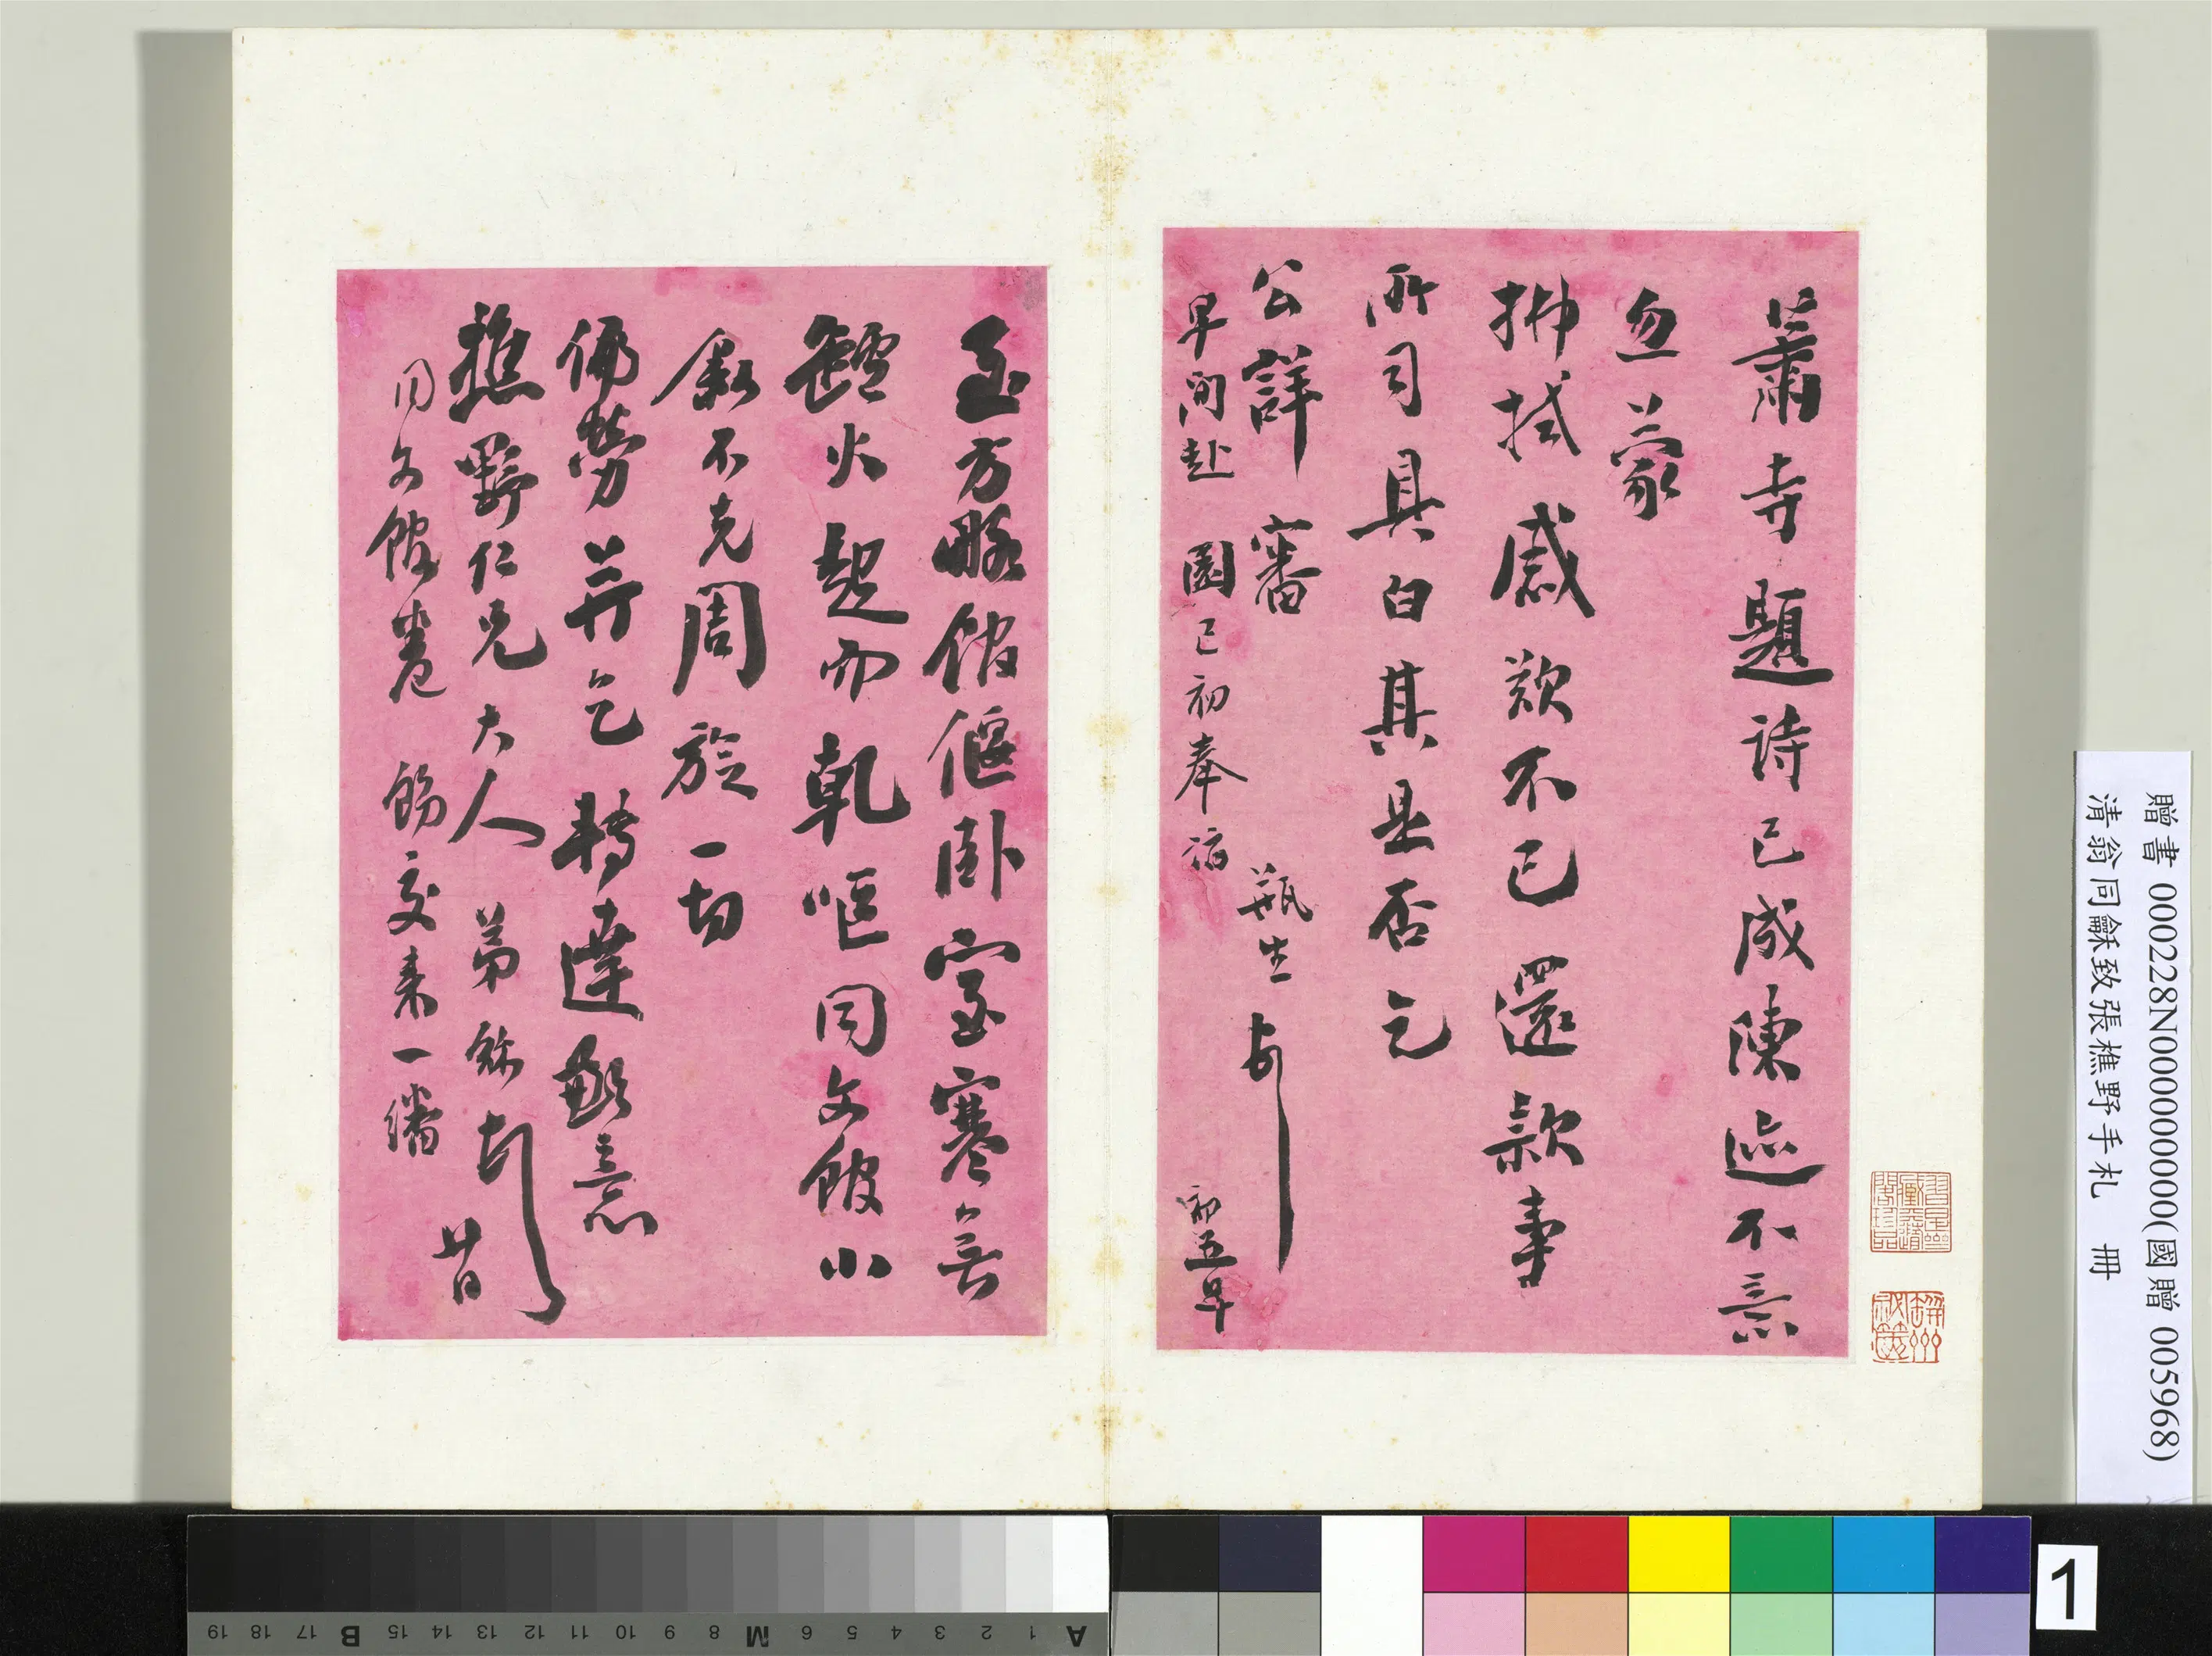 蕭寺題詩已成陳迹不意
忽蒙
拂拭感歎不已還款事
所司具白其是否乞
公詳審 瓶生
早間赴園已初奉詣 初五早
至方略館偃臥室寒無
鑪火起而乾嘔同文館小
敘不克周旋一切
偏勞并乞轉達歉意
樵野仁兄大人 弟龢頓 廿日
同文館卷 飭交來一繙
贈書 000228N000000000(國贈 005968)
清翁同龢致張樵野手札 冊
1
A 1 2 3 4 5 6 M 8 9 10 11 12 13 14 15 B 17 18 19